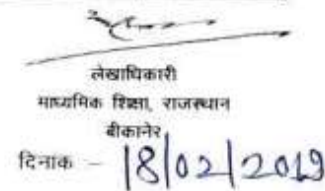 लेखाधिकारी
माध्यमिक शिक्षा, राजस्थान
बीकानेर
दिनांक - 18/02/2019